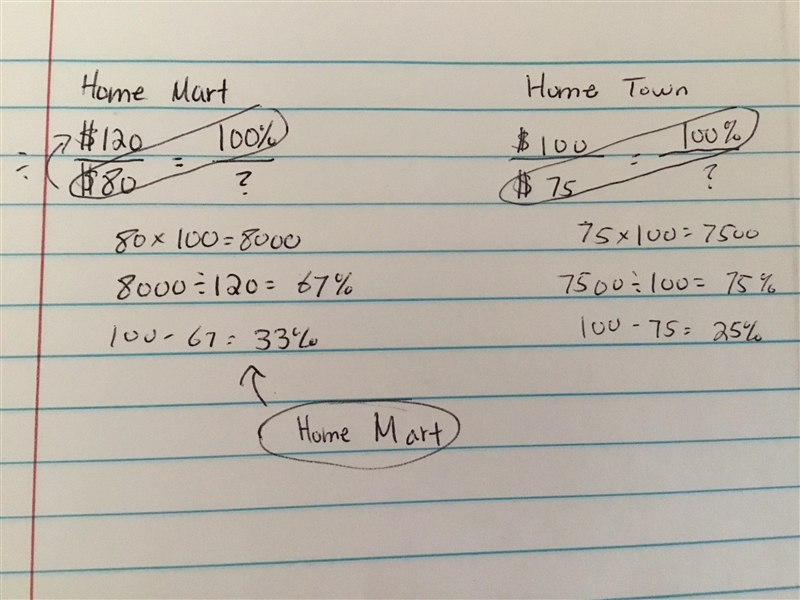 Home Mart
$120 = 100%
÷ $80 ?
80 × 100 = 8000
8000 ÷ 120 = 67%
100 - 67 = 33%
Home Mart
Home Town
$100 = 100%
$75 ?
75 × 100 = 7500
7500 ÷ 100 = 75%
100 - 75 = 25%